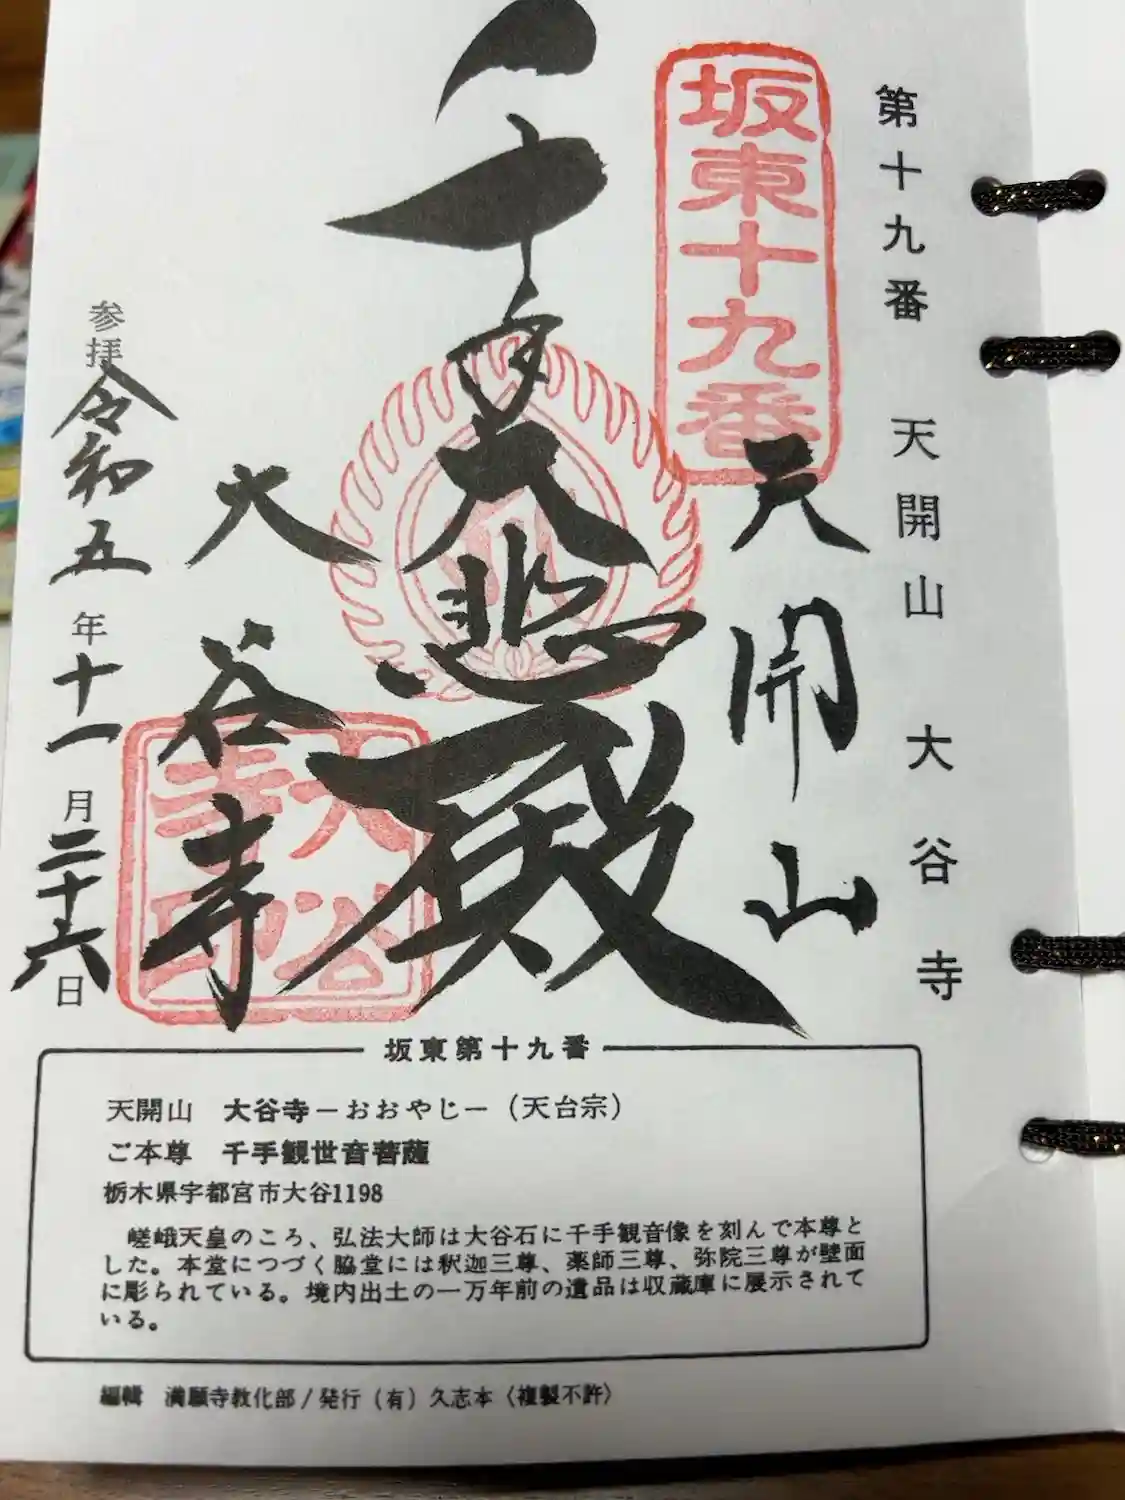 第十九番 天開山 大谷寺
坂東十九番
天開山
千手大悲殿
大谷寺
大谷寺印
参拝 令和五年十一月二十六日
坂東第十九番
天開山 大谷寺－おおやじ－（天台宗）
ご本尊 千手観世音菩薩
栃木県宇都宮市大谷1198
嵯峨天皇のころ、弘法大師は大谷石に千手観音像を刻んで本尊と
した。本堂につづく脇堂には釈迦三尊、薬師三尊、弥陀三尊が壁面
に彫られている。境内出土の一万年前の遺品は収蔵庫に展示されて
いる。
編輯 満願寺教化部/発行（有）久志本〈複製不許〉